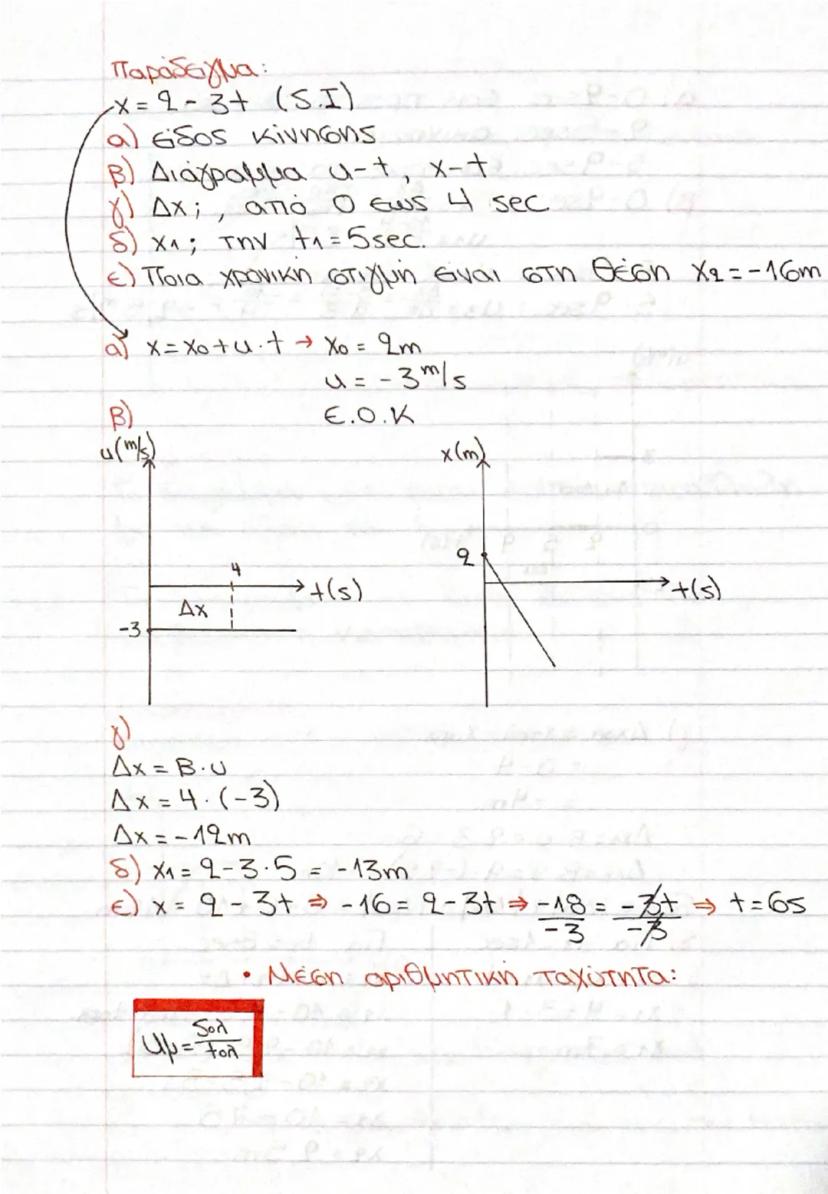 Παράδειγμα:
x = 2 - 3t (S.I)
α) είδος κίνησης
β) Διάγραμμα υ-t, x-t
γ) Δx; , από 0 εως 4 sec
δ) x₁; την t₁ = 5sec.
ε) Ποια χρονική στιγμή είναι στη θέση x₂ = -16m
α) x = x₀ + υ · t → x₀ = 2m
υ = -3 m/s
β) Ε.Ο.Κ
υ(m/s) x(m)
4
2
t(s) t(s)
Δx
-3
γ)
Δx = β · υ
Δx = 4 · (-3)
Δx = -12m
δ) x₁ = 2 - 3 · 5 = -13m
ε) x = 2 - 3t ⇒ -16 = 2 - 3t ⇒ -18/-3 = -3t/-3 ⇒ t = 6s
• Μέση αριθμητική ταχύτητα:
υμ = Sολ/tολ